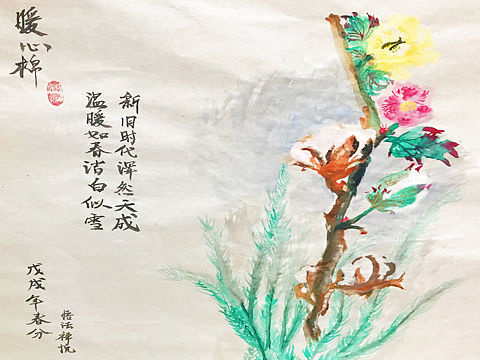 暖心棉
新旧时代浑然天成
温暖如春洁白似雪
戊戌年春分
悟法禅悦